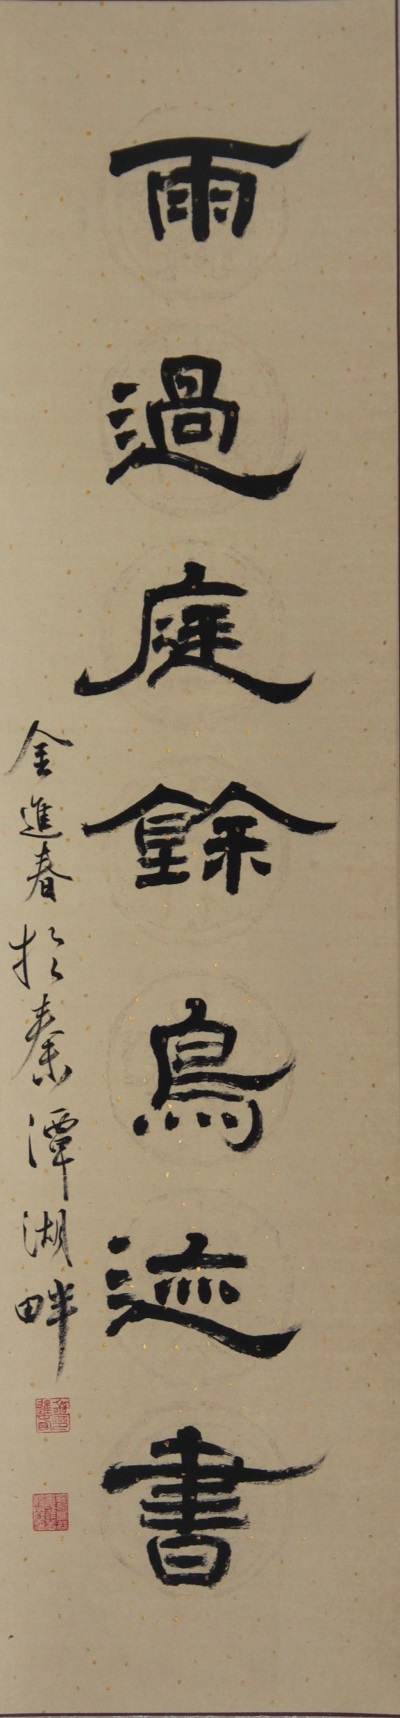 雨過庭餘鳥迹書
金進春於秦潭湖畔